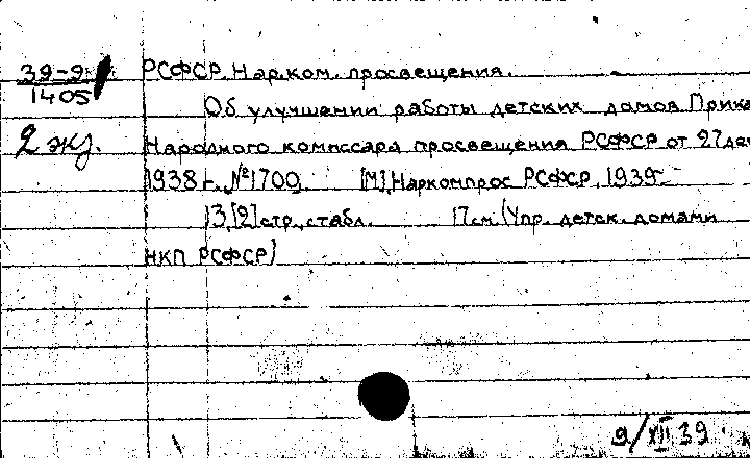 39-9
1405
2 экз.
РСФСР. Нар.ком. просвещения.
Об улучшении работы детских домов Прика
Народного комиссара просвещения РСФСР от 27 дек
1938 г. №1700. [М], Наркомпрос РСФСР, 1939
13, [2] стр. с табл. 17 см (Упр. детск. домами
НКП РСФСР)
9/XII 39